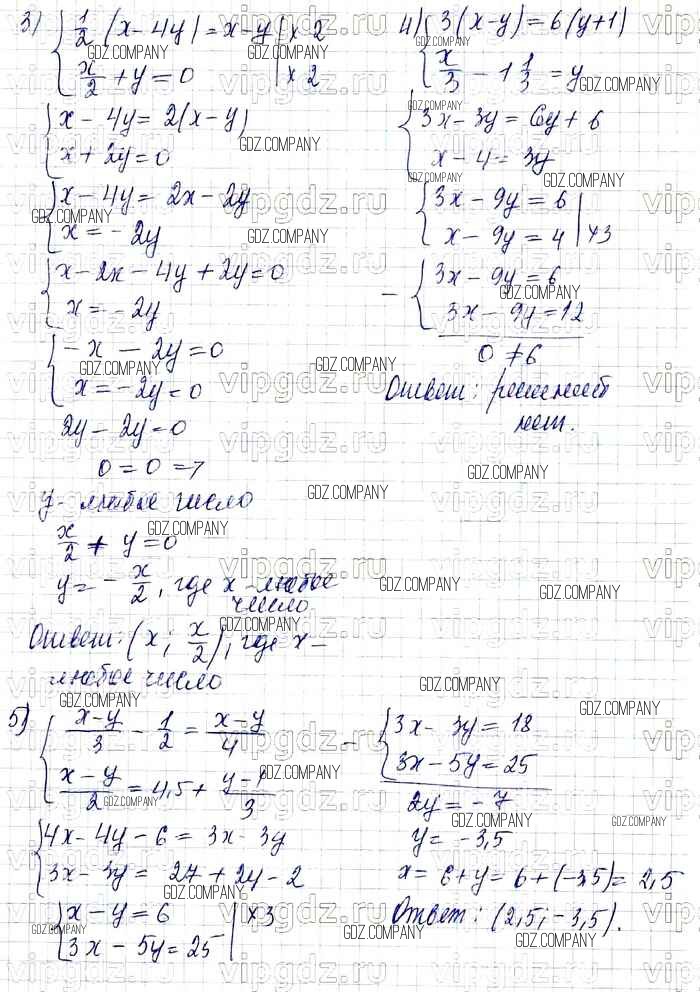 3) { 1/2 (x - 4y) = x - y | × 2
x/2 + y = 0 | × 2
{ x - 4y = 2(x - y)
x + 2y = 0
{ x - 4y = 2x - 2y
x = -2y
{ x - 2x - 4y + 2y = 0
x = -2y
{ -x - 2y = 0
x = -2y = 0
2y - 2y = 0
0 = 0 =>
y - любое число
x/2 + y = 0
y = - x/2, где x - любое
число
Ответ: (x; x/2), где x -
любое число
4) { 3(x-y) = 6(y+1)
x/3 - 1 1/3 = y
{ 3x - 3y = 6y + 6
x - 4 = 3y
{ 3x - 9y = 6
x - 9y = 4 | ×3
- { 3x - 9y = 6
3x - 9y = 12
0 ≠ 6
Ответ: решений
нет.
5) { x-y/3 - 1/2 = x-y/4
x-y/2 = 4,5 + y-1/3
{ 4x - 4y - 6 = 3x - 3y
3x - 3y = 27 + 2y - 2
{ x - y = 6 | ×3
3x - 5y = 25
- { 3x - 3y = 18
3x - 5y = 25
2y = -7
y = -3,5
x = 6 + y = 6 + (-3,5) = 2,5
Ответ: (2,5; -3,5).
GDZ.COMPANY
vipgdz.ru